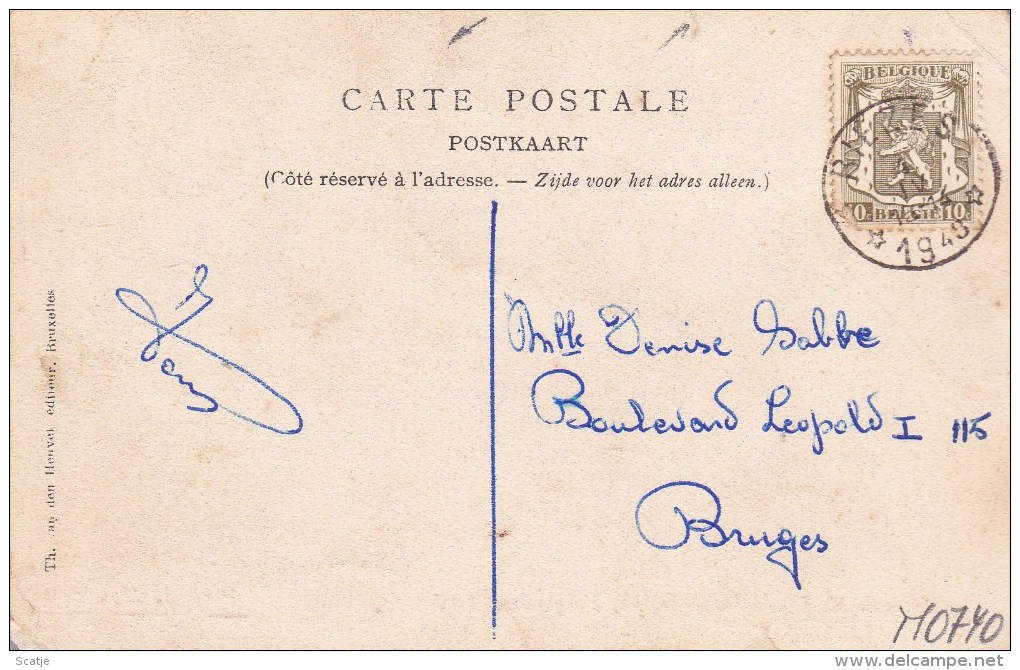 CARTE POSTALE
POSTKAART
(Côté réservé à l'adresse. — Zijde voor het adres alleen.)
BELGIQUE
BELGIË 10c
1949
Th. van den Heuvel éditeur, Bruxelles
Mlle Denise Sabbe
Boulevard Leopold I 115
Bruges
M0740
Scatje
delcampe.net